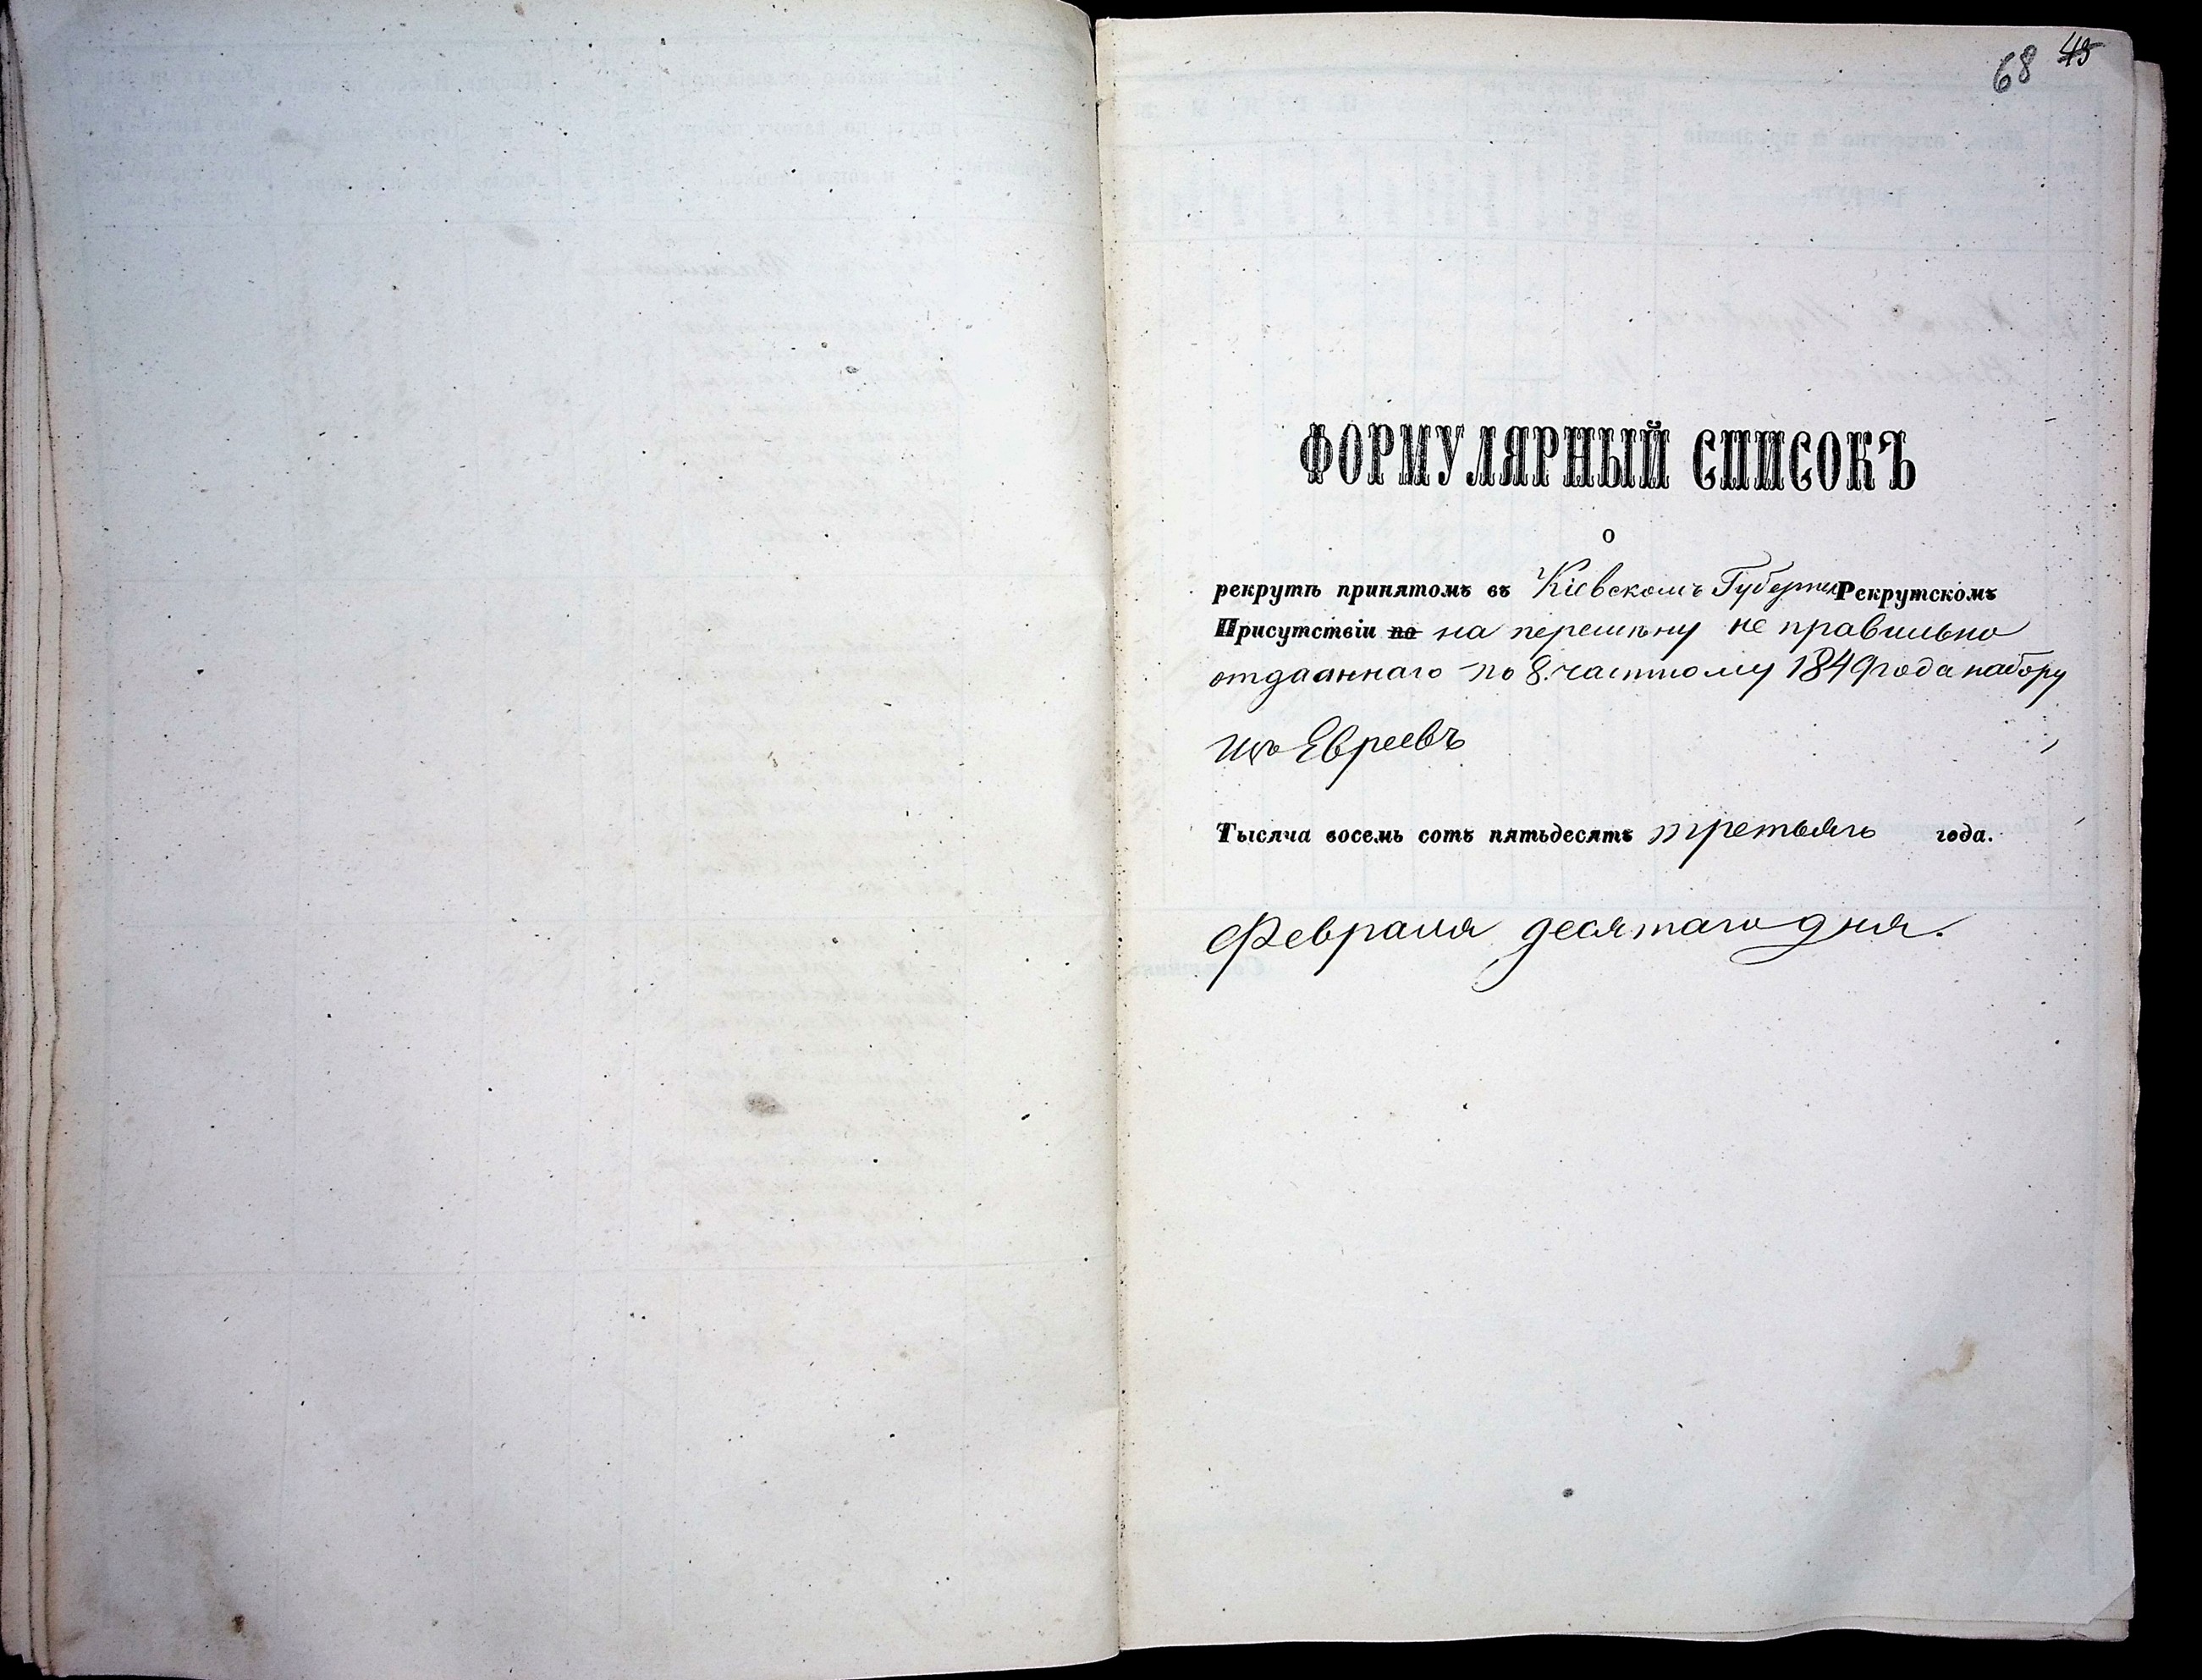 68 45
ФОРМУЛЯРНЫЙ СПИСОКЪ
о
рекрутѣ принятомъ въ Кіевскомъ Губерн Рекрутскомъ
Присутствіи по на перемѣну не правильно
отданнаго по 8. частному 1849 года набору
изъ Евреевъ
Тысяча восемь сотъ пятьдесятъ третьяго года.
Февраля десятаго дня.